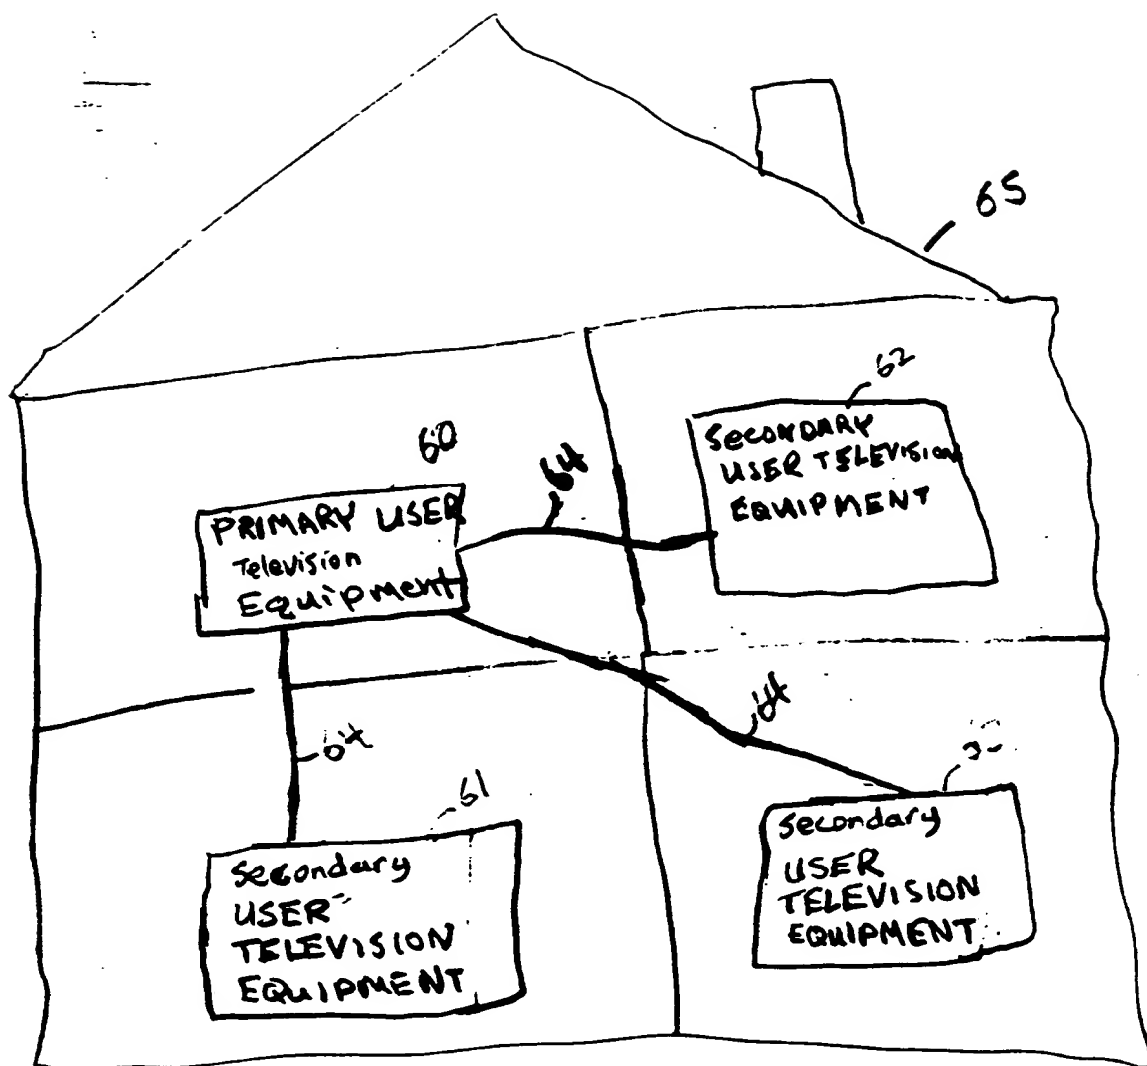 65
62
SECONDARY
USER TELEVISION
EQUIPMENT
60
64
PRIMARY USER
Television
Equipment
64
64
61
Secondary
USER
TELEVISION
EQUIPMENT
Secondary
USER
TELEVISION
EQUIPMENT